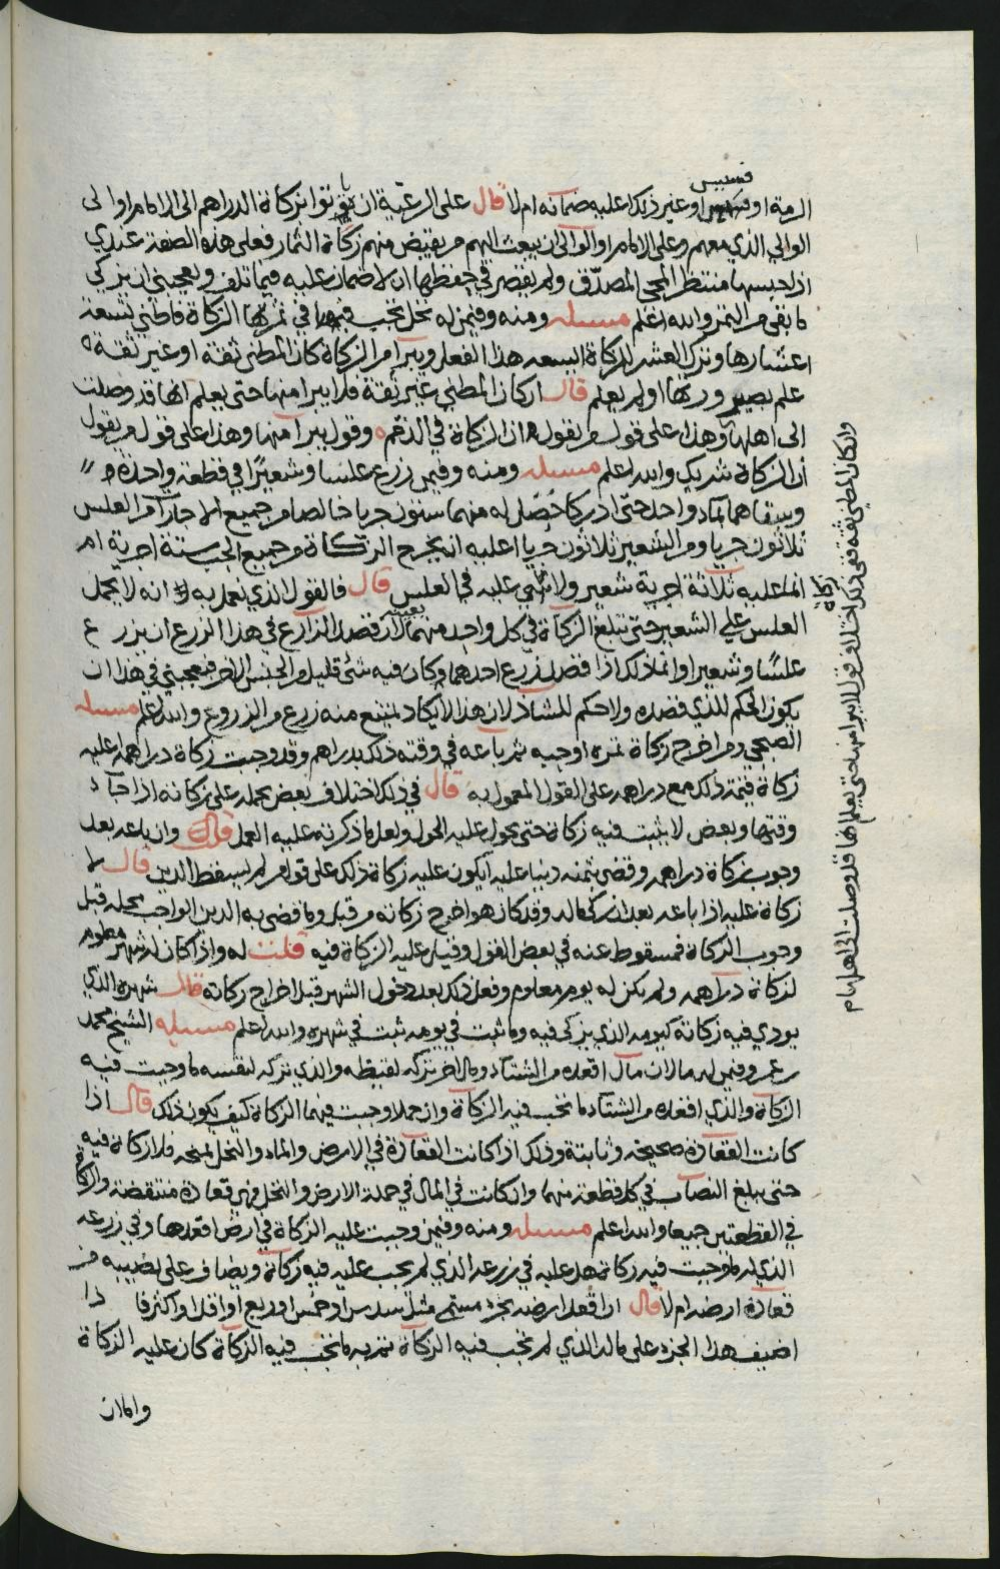 قسيس
الرمة او او غير ذلك اعليه ضمانه ام لا قال على الرعية ان يؤتوا زكاة الدراهم الى الامام او الى
الوالي الذي معهم وعلى الامام او الوالي ان يبعث اليهم من يقبض منهم زكاة الثمار فعلى هذه الصفة عندي
اذا حبسها منتظرا لمجي المصدّق ولم يقصر في حفظها ان لا ضمان عليه فيما تلف ويعجبني ان يزكي
ما بقي من التمر والله اعلم مسئله ومنه وفيمن له نخل تجب في ثمرتها الزكاة فاطنى تسعة
اعشارها وترك العشر للزكاة ايسعه هذا الفعل ويبرا من الزكاة كان المطني ثقة او غير ثقة
علم بصيرورتها او لم يعلم قال ان كان المطني غير ثقة فلا يبرا منها حتى يعلم انها قد وصلت
الى اهلها وهذا على قول من يقول ان الزكاة في الذمم وقول يبرا منها وهذا على قول من يقول
ان الزكاة شريك والله اعلم مسئله ومنه وفيمن زرع علسا وشعيرا في قطعة واحدة
وسقاهما بماء واحد حتى ادركا حصل له منهما ستون جريا خالصا من جميع الاجارآ من العلس
ثلاثون جريا ومن الشعير ثلاثون جريا اعليه ان يخرج الزكاة من جميع الحب ستة اجرية ام
انما عليه ثلاثة اجرية شعير ولا شي عليه في العلس قال فالقول الذي نعمل به انه لا يحمل
العلس على الشعير حتى تبلغ الزكاة في كل واحد منهما بعينه الا ان قصد الزارع في هذا الزرع ان يزرع
علسا وشعيرا وانما ذلك اذا قصد لزرع احدهما وكان فيه شئ قليل من الجنس الاخر فيعجبني في هذا ان
يكون الحكم للذي قصده ولا حكم للشاذ لان هذا لا يكاد يمتنع منه زرع من الزروع والله اعلم مسئله
الصبحي ومن اخرج زكاة تمره اوجبه ثم باعه في وقته ذلك بدراهم وقد وجبت زكاة دراهمه اعليه
زكاة قيمة ذلك مع دراهمه على القول المعمول به قال في ذلك اختلاف بعض يحمله على زكاته اذا جآء
وقتها وبعض لا يثبت فيه زكاة حتى يحول عليه الحول ولعل ما ذكرته عليه العمل قلت وان باعه بعد
وجوب زكاة دراهمه وقضى بثمنه دينا عليه ايكون عليه زكاة ذلك على قول من لم يسقط الدين قال لا
زكاة عليه اذا باعه بعد ان زكى ماله وقد كان هو اخرج زكاته من قبل وما قضى به الدين الواجب محله قبل
وجوب الزكاة فمسقوط عنه في بعض القول وقيل عليه الزكاة فيه قلت له واذا كان له شهر معلوم
لزكاة دراهمه ولم يكن له يوم معلوم وفعل ذلك بعد دخول الشهر قبل اخراج زكاته قال شهره الذي
يودي فيه زكاته كيومه الذي يزكي فيه وما ثبت في يومه ثبت في شهره والله اعلم مسئله الشيخ محمد
بن عمر وفيمن له مالان مال اقعده من الشتاء ومال اخر تركه لقيظه والذي تركه لنفسه ما وجبت فيه
الزكاة والذي اقعده من الشتاء ما تجب فيه الزكاة وان حملا وجبت فيهما الزكاة كيف يكون ذلك قال اذا
كانت القعادة صحيحة وثابتة وذلك اذا كانت القعادة في الارض والماء والنخل لمنحه فلا زكاة فيه
حتى يبلغ النصاب في كل قطعة منهما وان كانت في المال في جملة الارض والنخل فهي قعادة منتقضة والزكاة
في القطعتين جميعا والله اعلم مسئله ومنه وفيمن وجبت عليه الزكاة في ارض اقعدها وفي زرعه
الذي له ما وجبت فيه زكاة هل عليه في زرعه الذي لم يجب عليه فيه زكاة ويضاف على نصيبه من
قعادة ارضه ام لا قال ان اقعد ارضه بجزء مستم مثل سدس او خمس او ربع او اقل او اكثر فاذا
اضيف هذا الجزء على ماله الذي لم تجب فيه الزكاة تتم به ما تجب فيه الزكاة كان عليه الزكاة
وامالان
وان كان المطني ثقة ففي ذلك اختلاف قول لا يبرا منها حتى يعلم انها قد وصلت الى اهلها